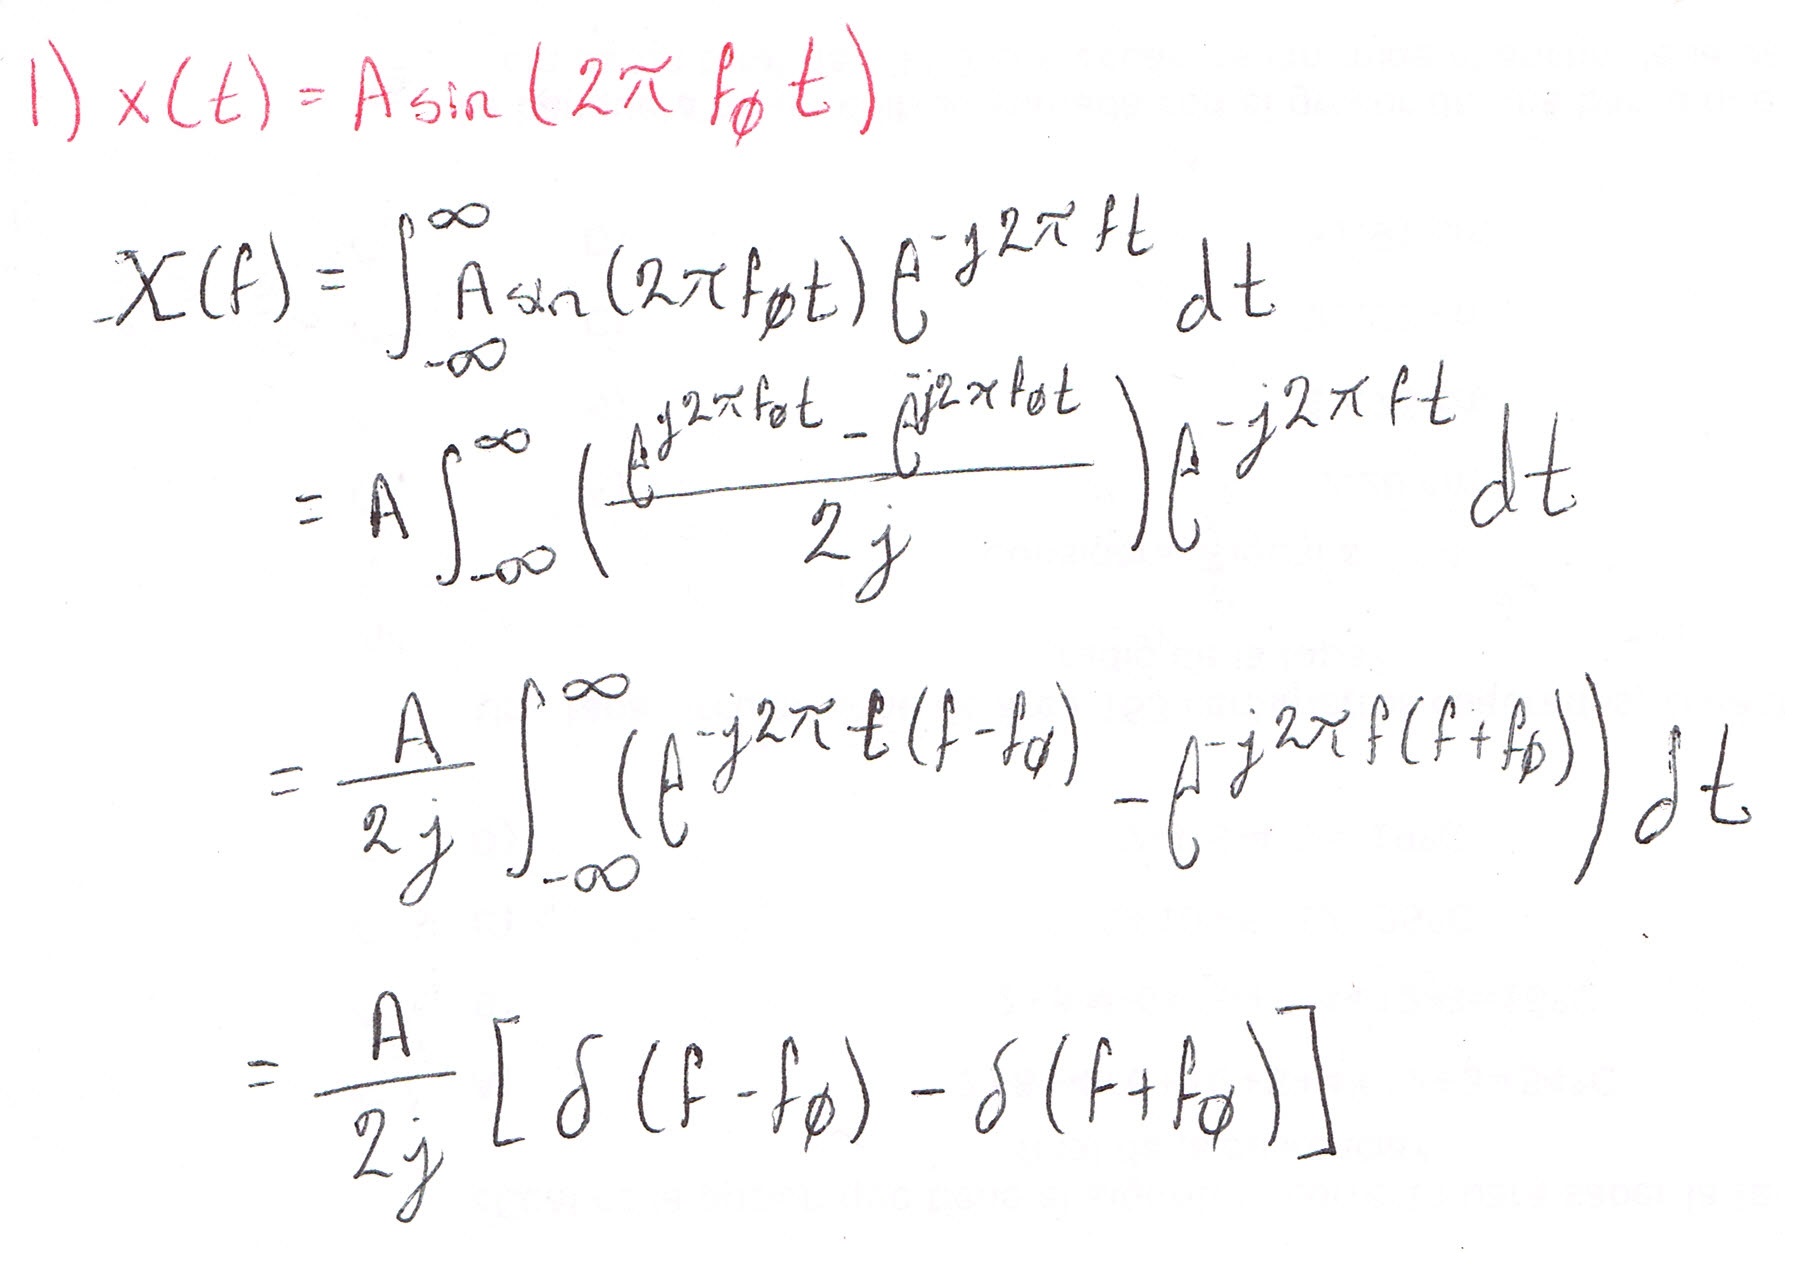 1) x(t) = A sin(2π f₀ t)
X(f) = ∫_{-∞}^{∞} A sin(2π f₀ t) e^{-j2π ft} dt
= A ∫_{-∞}^{∞} ( (e^{j2π f₀ t} - e^{-j2π f₀ t}) / 2j ) e^{-j2π ft} dt
= A/2j ∫_{-∞}^{∞} (e^{-j2π t(f-f₀)} - e^{-j2π f(f+f₀)}) dt
= A/2j [δ(f-f₀) - δ(f+f₀)]